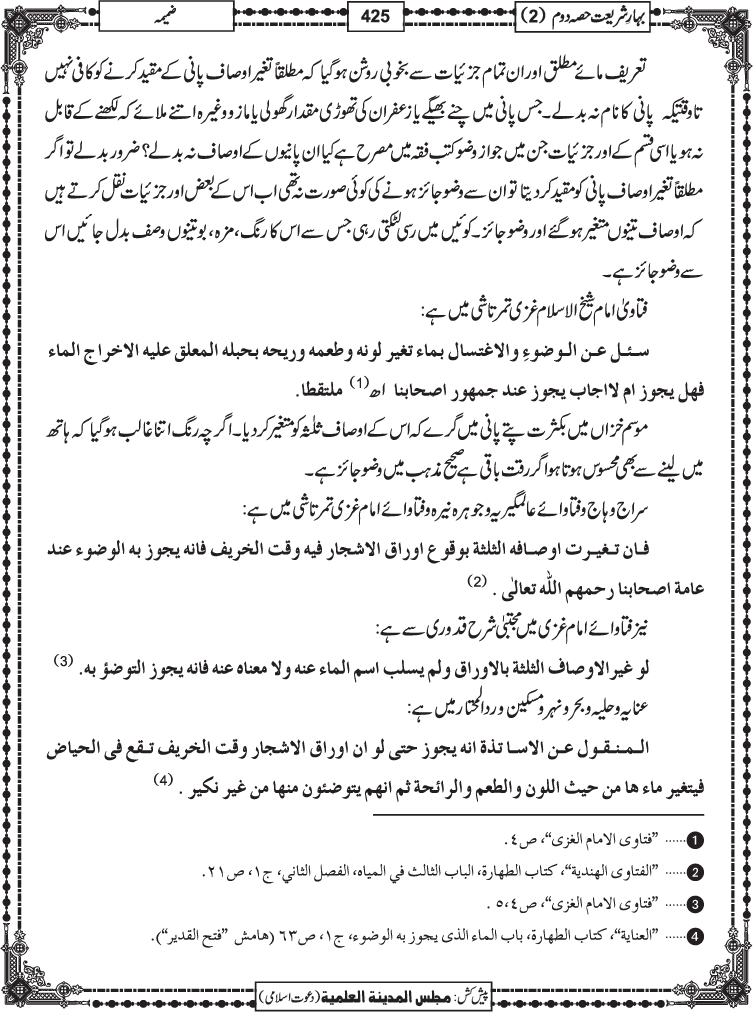 بہارِ شریعت حصہ دوم (2)
425
ضمیمہ
تعریف مائے مطلق اور ان تمام جزئیات سے بخوبی روشن ہوگیا کہ مطلقاً تغیر اوصاف پانی کے مقید کرنے کو کافی نہیں
تاوقتیکہ پانی کا نام نہ بدلے۔ جس پانی میں چنے بھیگے یا زعفران کی تھوڑی مقدار گھولی یا مازو وغیرہ اتنے ملائے کہ لکھنے کے قابل
نہ ہو یا اسی قسم کے اور جزئیات جن میں جواز وضو کتب فقہ میں مصرح ہے کیا ان پانیوں کے اوصاف نہ بدلے؟ ضرور بدلے تو اگر
مطلقاً تغیر اوصاف پانی کو مقید کر دیتا تو ان سے وضو جائز ہونے کی کوئی صورت نہ تھی اب اس کے بعض اور جزئیات نقل کرتے ہیں
کہ اوصاف تینوں متغیر ہو گئے اور وضو جائز۔ کوئیں میں رسی لٹکتی رہی جس سے اس کا رنگ، مزہ، بو تینوں وصف بدل جائیں اس
سے وضو جائز ہے۔
فتاویٰ امام شیخ الاسلام غزی تمرتاشی میں ہے:
سئل عن الوضوءِ والاغتسال بماء تغیر لونه وطعمه وریحه بحبله المعلق علیه الاخراج الماء
فهل یجوز ام لا اجاب یجوز عند جمهور اصحابنا اه (1) ملتقطا.
موسم خزاں میں بکثرت پتے پانی میں گرے کہ اس کے اوصاف ثلٰثہ کو متغیر کر دیا۔ اگرچہ رنگ اتنا غالب ہوگیا کہ ہاتھ
میں لینے سے بھی محسوس ہوتا ہو اگر رقت باقی ہے صحیح مذہب میں وضو جائز ہے۔
سراج وہاج وفتاوائے عالمگیریہ وجوہرہ نیرہ وفتاوائے امام غزی تمرتاشی میں ہے:
فان تغیرت اوصافه الثلثة بوقوع اوراق الاشجار فیه وقت الخریف فانه یجوز به الوضوء عند
عامة اصحابنا رحمهم اللّٰه تعالٰی . (2)
نیز فتاوائے امام غزی میں مجتبیٰ شرح قدوری سے ہے:
لو غیر الاوصاف الثلثة بالاوراق ولم یسلب اسم الماء عنه ولا معناه عنه فانه یجوز التوضؤ به. (3)
عنایہ وحلیہ وبحر ونہر ومسکین وردالمحتار میں ہے:
المنقول عن الاساتذة انه یجوز حتی لو ان اوراق الاشجار وقت الخریف تقع فی الحیاض
فیتغیر ماء ها من حیث اللون والطعم والرائحة ثم انهم یتوضئون منها من غیر نکیر . (4)
1 ...... ”فتاوی الامام الغزی“، ص٤ .
2 ...... ”الفتاوی الهندیة“، کتاب الطهارة، الباب الثالث في المیاه، الفصل الثاني، ج١، ص٢١.
3 ...... ”فتاوی الامام الغزی“، ص٥،٤ .
4 ...... ”العنایة“، کتاب الطهارة، باب الماء الذی یجوز به الوضوء، ج١، ص٦٣ (هامش ”فتح القدیر“).
پیش کش: مجلس المدینة العلمیة (دعوتِ اسلامی)